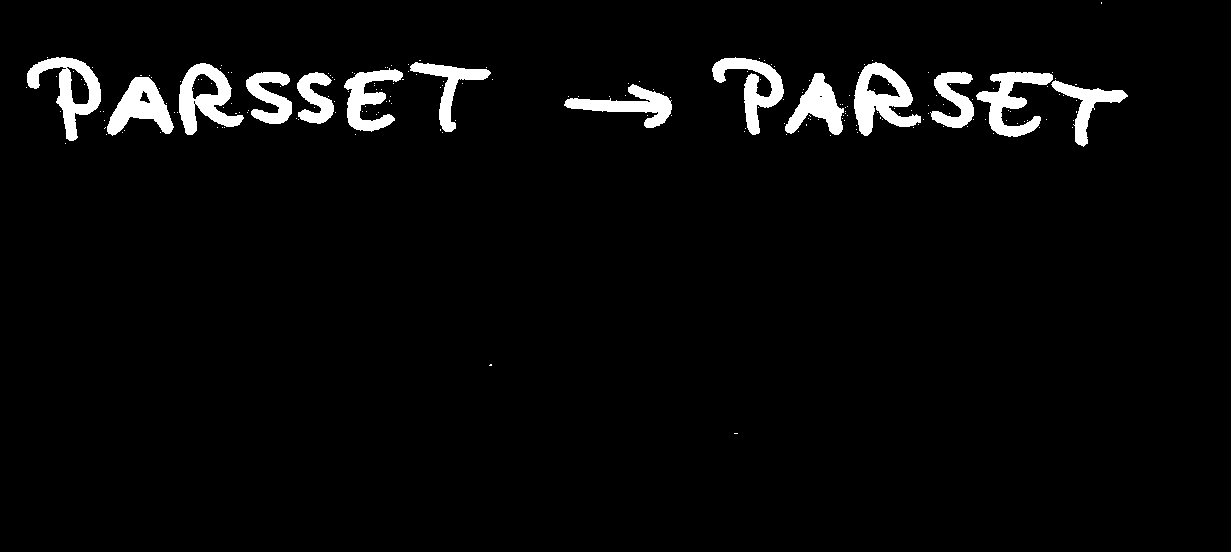 PARSSET → PARSET